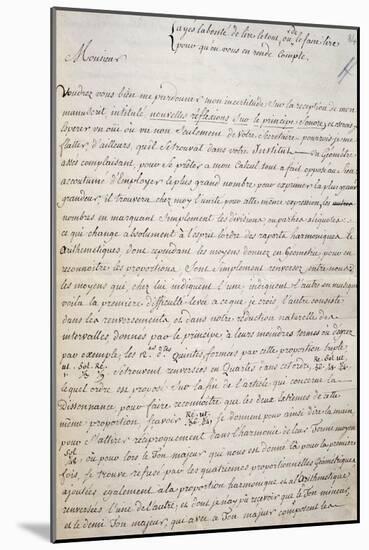 ayes la bonté de lire le tout, ou de le faire lire
pour qu'on vous en rende Compte.
Monsieur
Voudrez vous bien me pardonner mon incertitude sur la reception de mon
manuscrit, intitulé nouvelles réflexions sur le principe Sonore, et
un oüi ou un non seulement de votre Secretaire. pourrois je me
flatter, d'ailleurs, qu'il se trouvat dans votre Institut un Geometre
assez complaisant, pour se prêter a mon Calcul tout a fait opposé au
accoutumé d'Employer le plus grand nombre pour exprimer la plus grande
grandeur, il trouvera chez moy l'unité pour cette même expression, les
nombres en marquant simplement les divisions ou parties aliquotes:
ce qui change absolument a l'esprit l'ordre des raports harmoniques et
Arithmetiques, dont cependant les moyens donnez en Geometrie, pour en
reconnoître les proportions sont simplement renversez entre nous.
les moyens qui, chez lui indiquent l'une, indiquent l'autre en musique
voila la premiere difficulté levée a ce que je crois, l'autre consiste
dans les renversements, et dans notre réduction naturelle des
intervalles donnés par le principe, a leurs moindres termes ou degrez
par exemple, les 12.es Quintes formées par cette proportion triple
ut. Sol. Ré.
se trouvent renversées en Quartes dans cet ordre, Re. Sol. ut
lequel ordre est proposé sur la fin de l'article qui concerne la
Dissonnance, pour faire reconnoître que les deux extrêmes de cette
même proportion, sçavoir Re. ut. se donnent pour ainsi dire la main,
pour s'attirer réciproquement dans l'harmonie de leur terme moyen
Sol
ou pour lors le Ton majeur qui nous est donné là pour la premiere
fois, se trouve refusé par les quatriemes proportionnelles Géometriques
ajoutées également a la proportion harmonique et a l'Arithmetique
renversées l'une de l'autre, et dont je n'ay pu recevoir que le Ton mineur,
et le demi Ton majeur, qui avec le Ton majeur composent les